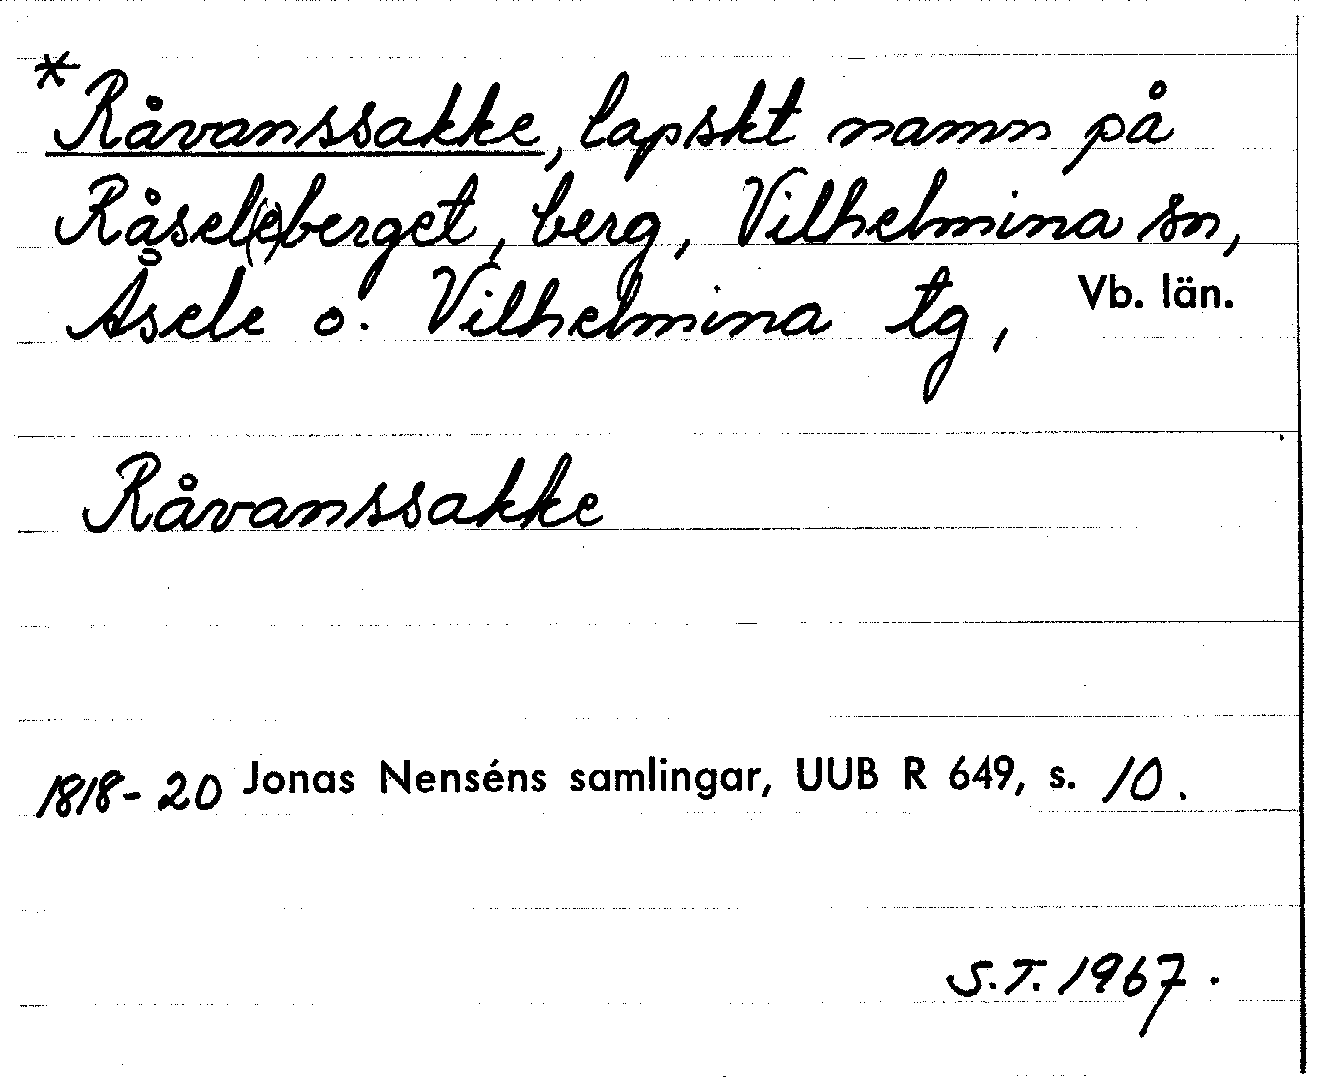 * Råvanssakke, lapskt namn på
Råsel(e)berget, berg, Vilhelmina sn,
Åsele o. Vilhelmina tg, Vb. län.
Råvanssakke
1818-20 Jonas Nenséns samlingar, UUB R 649, s. 10.
S.T. 1967.